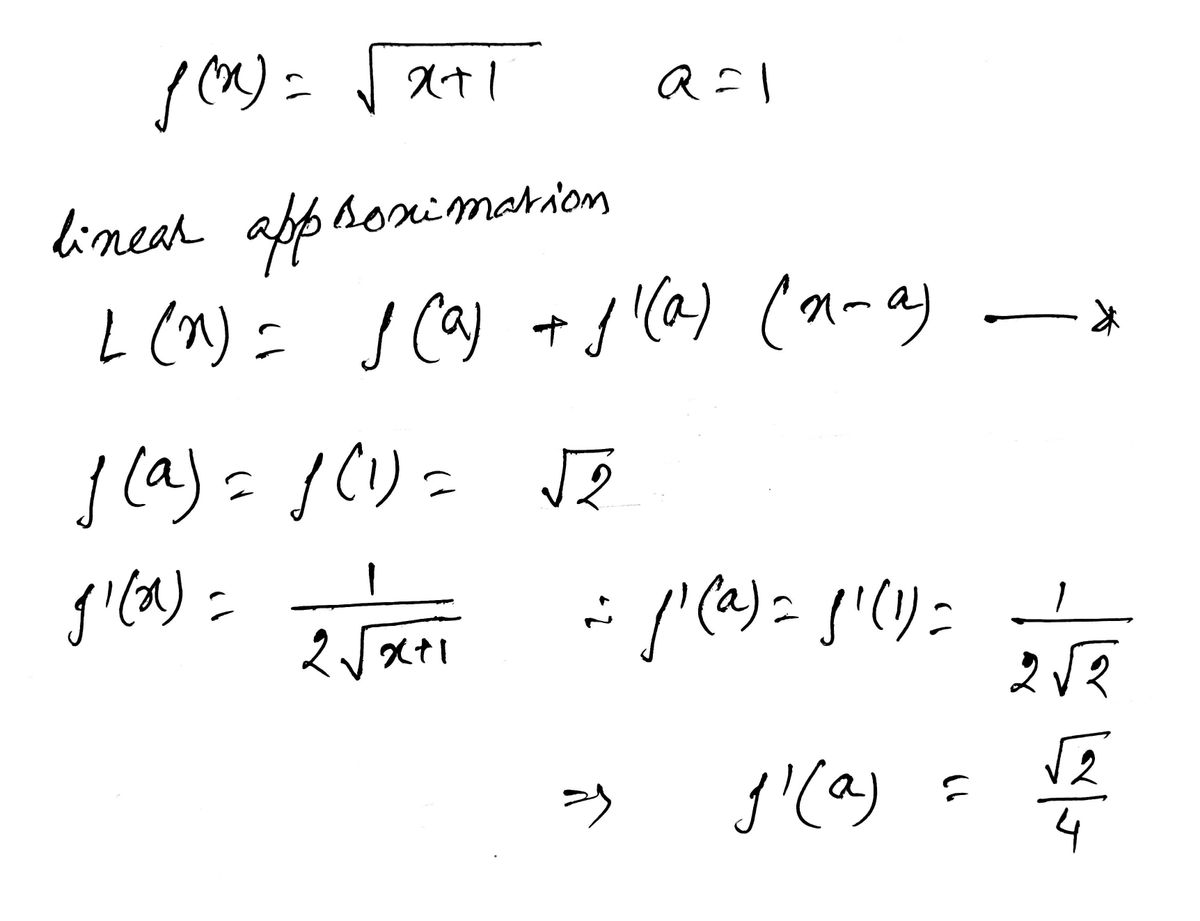 f(x) = √(x+1) a = 1
linear approximation
L(x) = f(a) + f'(a) (x-a) —*
f(a) = f(1) = √2
f'(x) = 1/(2√(x+1)) ∴ f'(a) = f'(1) = 1/(2√2)
⇒ f'(a) = √2/4